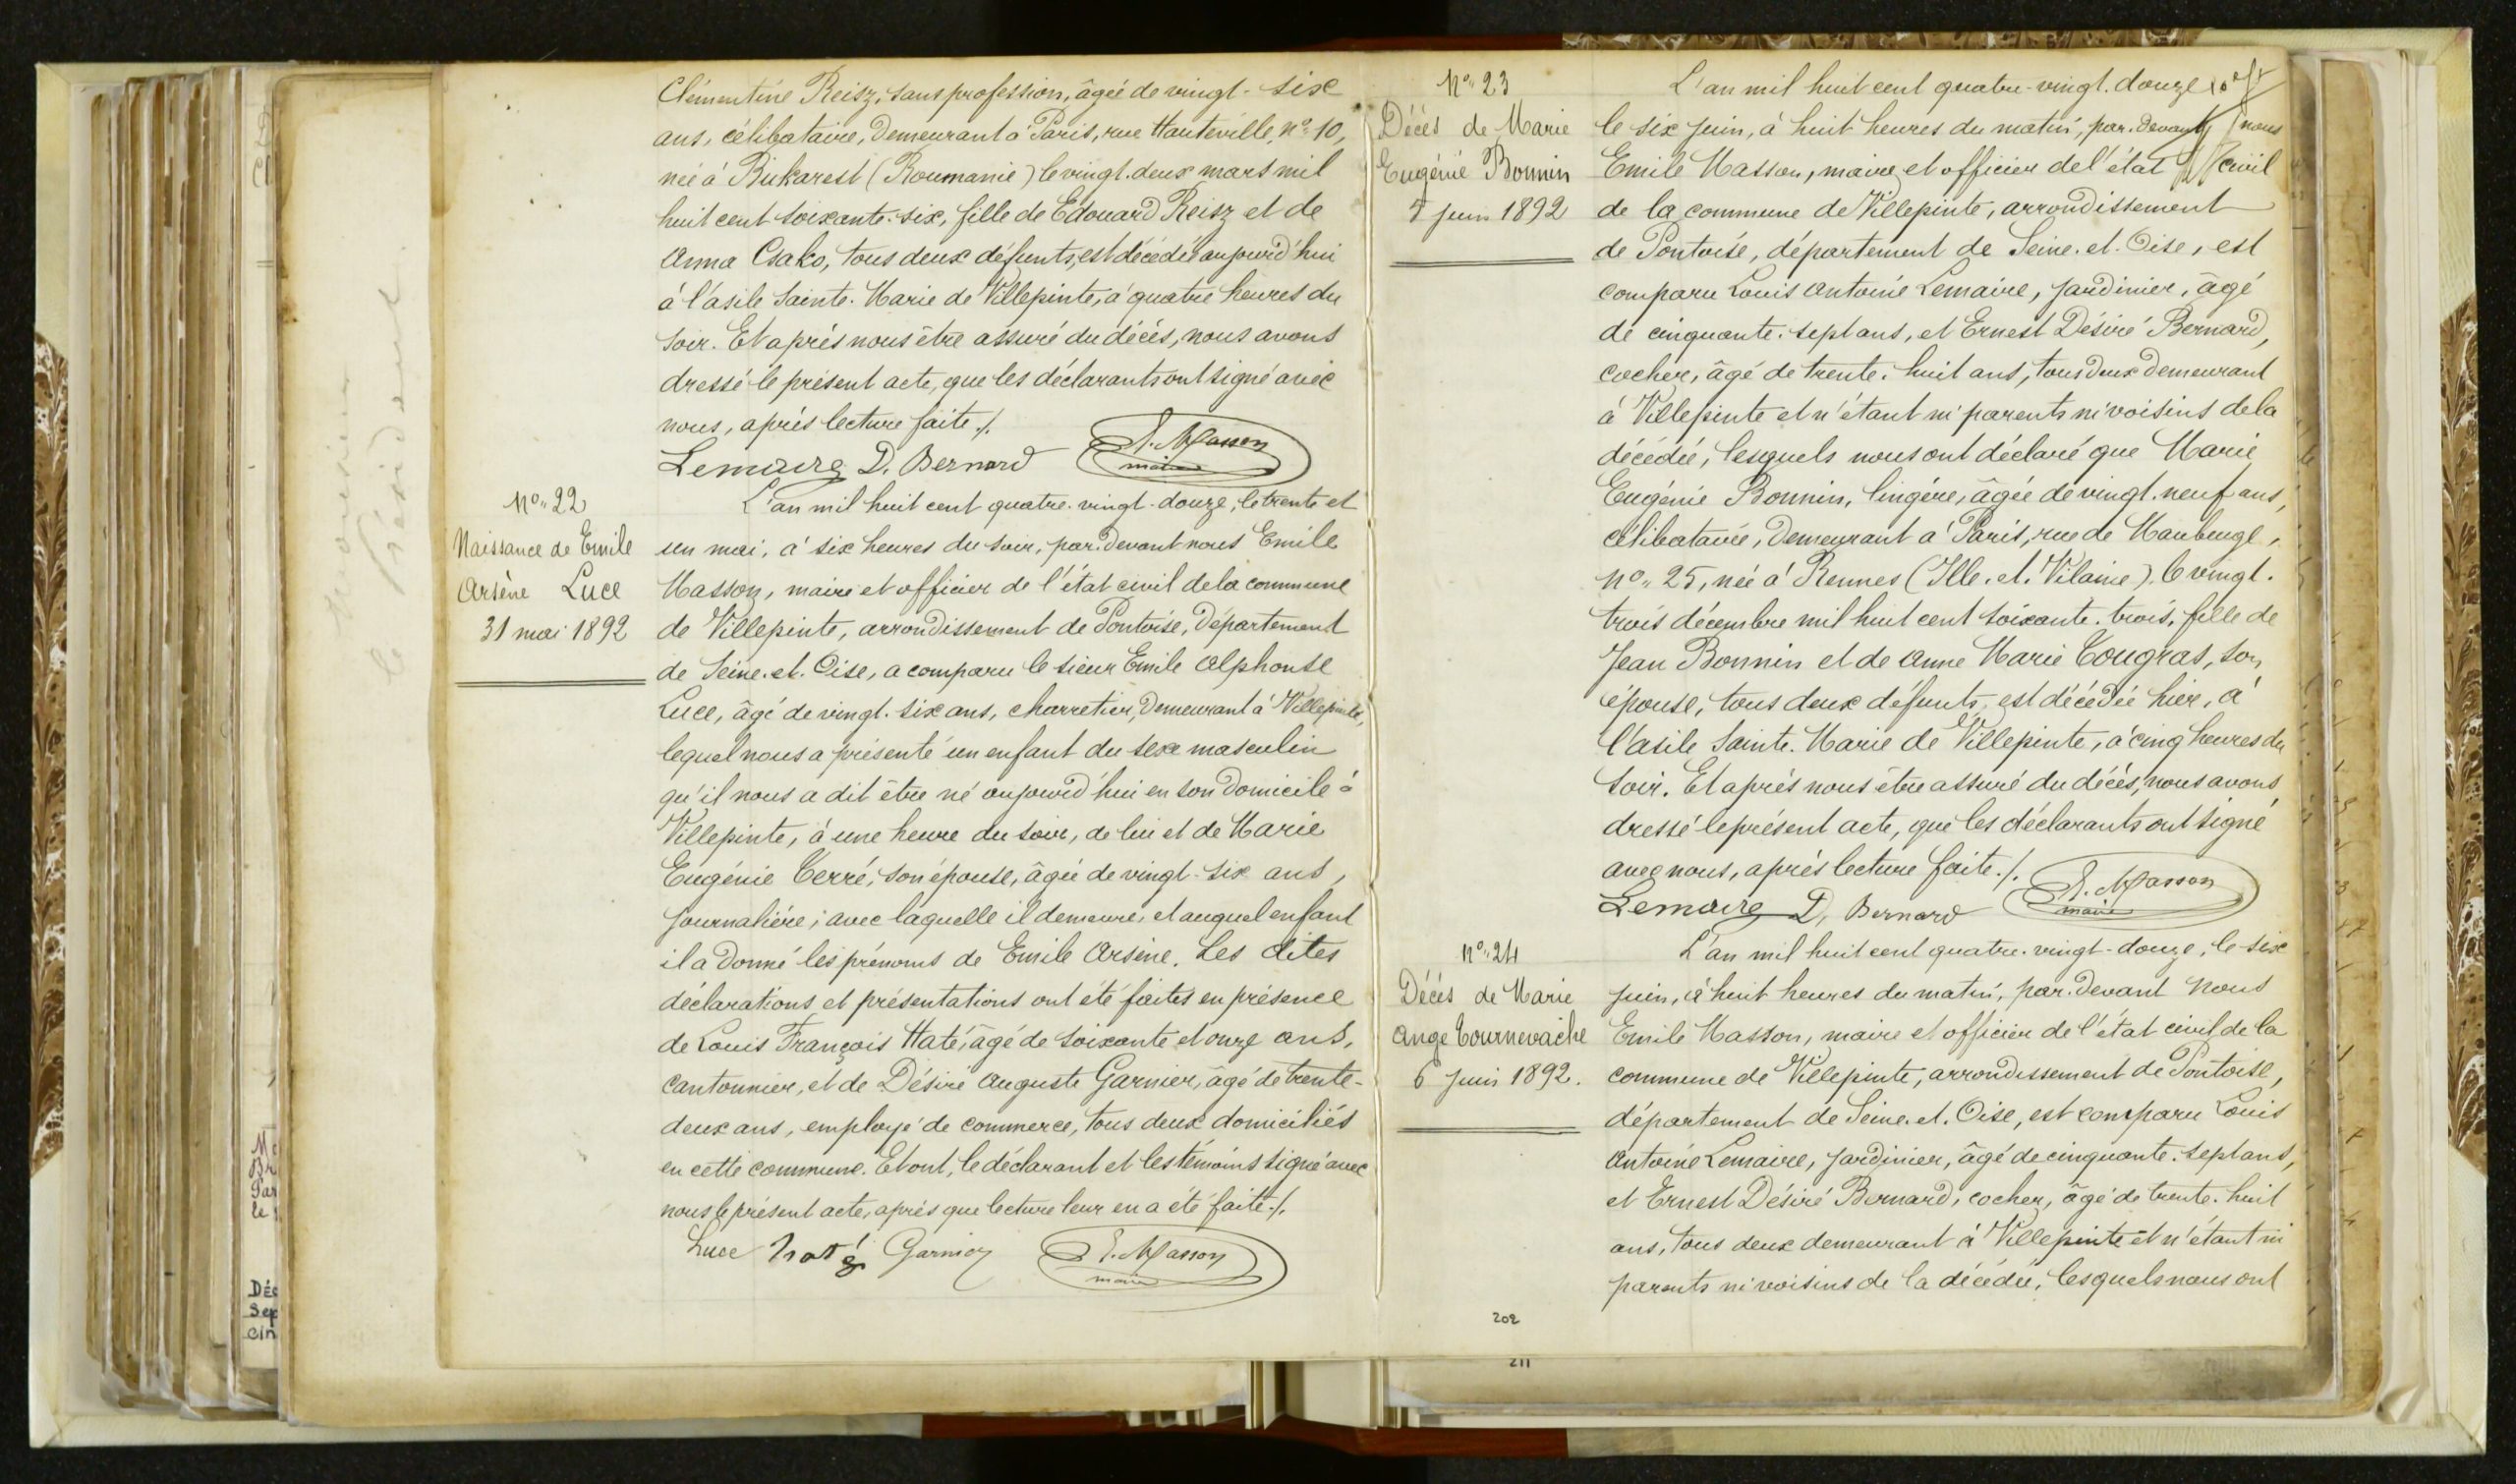 Clémentine Reisz, sans profession, âgée de vingt-six
ans, célibataire, demeurant à Paris, rue Hauteville, n° 10,
née à Bukarest (Roumanie) le vingt-deux mars mil
huit cent soixante-six, fille de Edouard Reisz et de
Anna Csako, tous deux défunts, est décédée aujourd'hui
à l'asile Sainte-Marie de Villepinte, à quatre heures du
soir. Et après nous être assuré du décès, nous avons
dressé le présent acte, que les déclarants ont signé avec
nous, après lecture faite ./.
Lemaire D. Bernard E. Masson
maire
N° 22
Naissance de Emile
Arsène Luce
31 mai 1892
L'an mil huit cent quatre-vingt-douze, le trente et
un mai, à six heures du soir, par-devant nous Emile
Masson, maire et officier de l'état civil de la commune
de Villepinte, arrondissement de Pontoise, département
de Seine-et-Oise, a comparu le sieur Emile Alphonse
Luce, âgé de vingt-six ans, charretier, demeurant à Villepinte,
lequel nous a présenté un enfant du sexe masculin
qu'il nous a dit être né aujourd'hui en son domicile à
Villepinte, à une heure du soir, de lui et de Marie
Eugénie Terré, son épouse, âgée de vingt-six ans,
journalière, avec laquelle il demeure, et auquel enfant
il a donné les prénoms de Emile Arsène. Les dites
déclarations et présentations ont été faites en présence
de Louis François Haté, âgé de soixante et onze ans,
cantonnier, et de Désiré Auguste Garnier, âgé de trente-
deux ans, employé de commerce, tous deux domiciliés
en cette commune. Et ont, le déclarant et les témoins signé avec
nous le présent acte, après que lecture leur en a été faite ./.
Luce Haté Garnier E. Masson
maire
N° 23
Décès de Marie
Eugénie Bonnin
5 juin 1892
L'an mil huit cent quatre-vingt-douze
le six juin, à huit heures du matin, par-devant nous
Emile Masson, maire et officier de l'état civil
de la commune de Villepinte, arrondissement
de Pontoise, département de Seine-et-Oise, est
comparu Louis Antoine Lemaire, jardinier, âgé
de cinquante-sept ans, et Ernest Désiré Bernard,
cocher, âgé de trente-huit ans, tous deux demeurant
à Villepinte et n'étant ni parents ni voisins de la
décédée, lesquels nous ont déclaré que Marie
Eugénie Bonnin, lingère, âgée de vingt-neuf ans,
célibataire, demeurant à Paris, rue de Maubeuge,
n° 25, née à Rennes (Ille-et-Vilaine) le vingt-
trois décembre mil huit cent soixante-trois, fille de
Jean Bonnin et de Anne Marie Tougras, son
épouse, tous deux défunts, est décédée hier, à
l'asile Sainte-Marie de Villepinte, à cinq heures du
soir. Et après nous être assuré du décès, nous avons
dressé le présent acte, que les déclarants ont signé
avec nous, après lecture faite ./.
Lemaire D. Bernard E. Masson
maire
N° 24
Décès de Marie
Ange Tournevache
6 juin 1892.
L'an mil huit cent quatre-vingt-douze, le six
juin, à huit heures du matin, par-devant nous
Emile Masson, maire et officier de l'état civil de la
commune de Villepinte, arrondissement de Pontoise,
département de Seine-et-Oise, est comparu Louis
Antoine Lemaire, jardinier, âgé de cinquante-sept ans,
et Ernest Désiré Bernard, cocher, âgé de trente-huit
ans, tous deux demeurant à Villepinte et n'étant ni
parents ni voisins de la décédée, lesquels nous ont
202
211